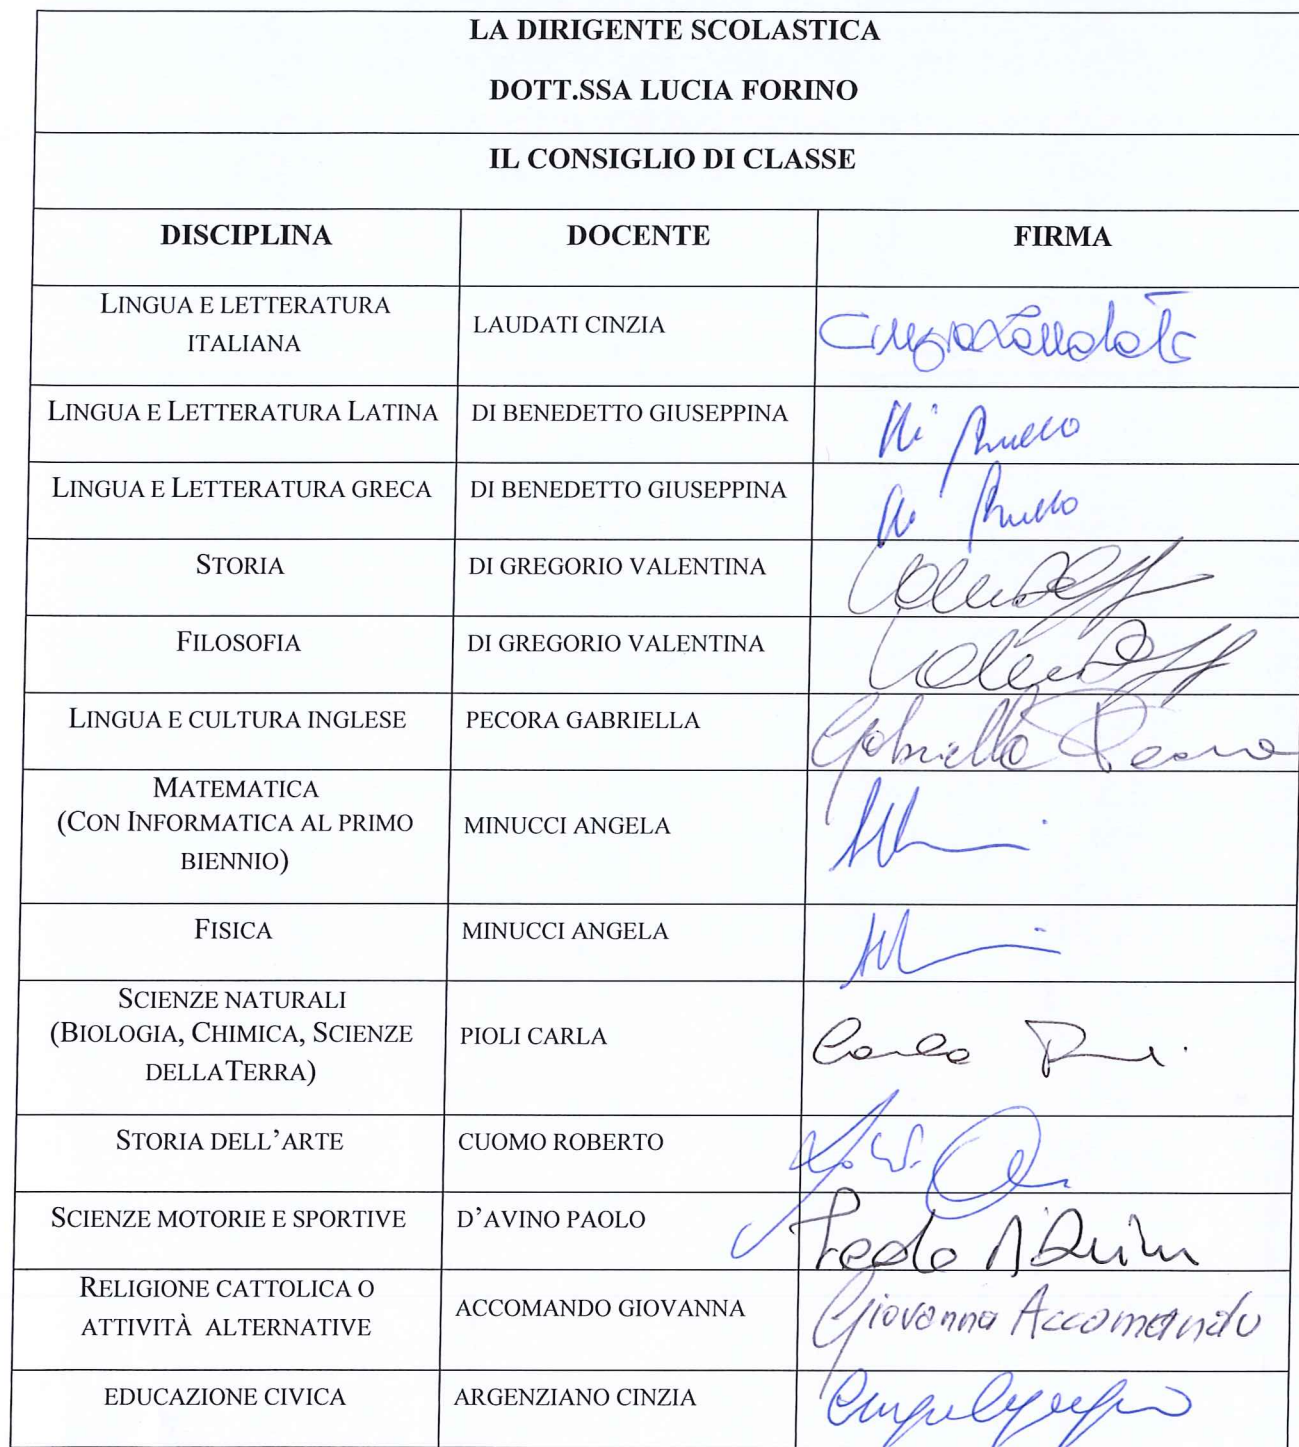 LA DIRIGENTE SCOLASTICA
DOTT.SSA LUCIA FORINO
IL CONSIGLIO DI CLASSE
DISCIPLINA DOCENTE FIRMA
LINGUA E LETTERATURA
ITALIANA
LAUDATI CINZIA
LINGUA E LETTERATURA LATINA DI BENEDETTO GIUSEPPINA
LINGUA E LETTERATURA GRECA DI BENEDETTO GIUSEPPINA
STORIA DI GREGORIO VALENTINA
FILOSOFIA DI GREGORIO VALENTINA
LINGUA E CULTURA INGLESE PECORA GABRIELLA Gabriella Pecora
MATEMATICA
(CON INFORMATICA AL PRIMO
BIENNIO)
MINUCCI ANGELA
FISICA MINUCCI ANGELA
SCIENZE NATURALI
(BIOLOGIA, CHIMICA, SCIENZE
DELLATERRA)
PIOLI CARLA Carla
STORIA DELL'ARTE CUOMO ROBERTO
SCIENZE MOTORIE E SPORTIVE D'AVINO PAOLO Paolo D'Avino
RELIGIONE CATTOLICA O
ATTIVITÀ ALTERNATIVE
ACCOMANDO GIOVANNA Giovanna Accomando
EDUCAZIONE CIVICA ARGENZIANO CINZIA